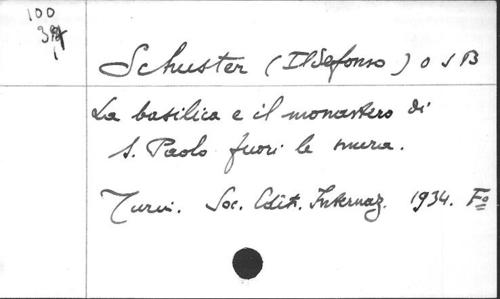 100
Schuster (Ildefonso) O S B
La basilica e il monastero di
S. Paolo fuori le mura.
Turin. Soc. Edit. Internaz. 1934. Fº